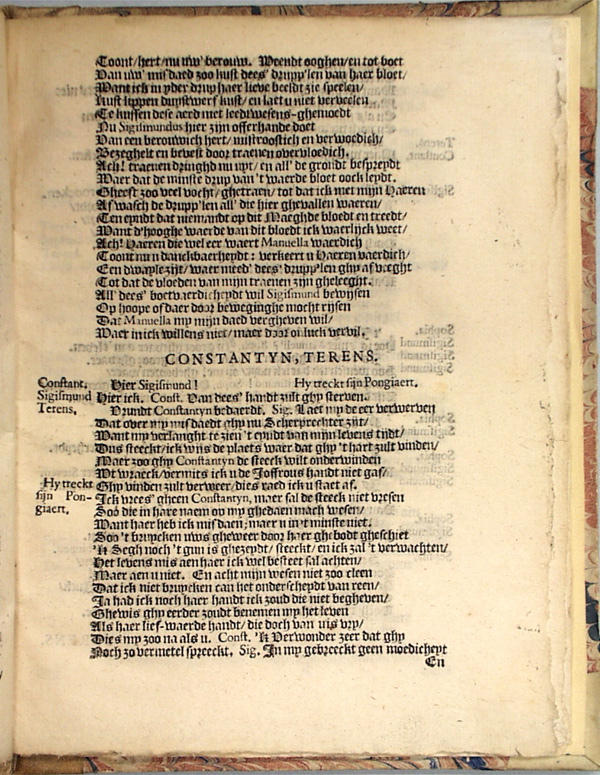 Toont/hert/nu uw' berouw. Weendt ooghen/en tot boet
Van uw' misdaed zoo kust dees' drupp'len van haer bloet/
Want ick in yder drup haer lieve beeldt zie speelen/
Kust lippen duystwerf kust/ en laet u niet verveelen
Te kussen dese aerd met leedtwesens-ghemoedt
Nu Sigismundus hier zijn offerhande doet
Van een berouwich hert/ mistroostich en verwoedich/
Bezeghelt en bevest door traenen overvloedich.
Ach! traenen dringhd nu upt/ en all' de grondt besprepdt
Waer dat de minste drup van 't waerde bloet oock leydt.
Gheeft zoo veel vocht/ ghetraen/ tot dat ick met mijn Haeren
Af wasch de drupp'len all' die hier ghevallen waeren/
Ten eyndt dat niemandt op dit Maeghde bloedt en treedt/
Want d'hooghe waerde van dit bloedt ick waerlijck weet/
Ach! Haeren die wel eer waert Manuella waerdich
Toont nu danckbaerheydt: verkeert u Haeren vaerdich/
Een dwayle zijt/ waer meed' dees' drupp'len ghy af vaeght
Tot dat de vloeden van mijn traenen zijn gheleegijt.
All' dees' boetvaerdicheydt wil Sigismund bewijsen
Op hoope of daer door beweginghe mocht rijsen
Dat Manuella my mijn daed vergheven wil/
Waer in ick willens niet/ maer door on luck vervil.
CONSTANTYN, TERENS.
Constant. Hier Sigismund! Hy treckt sijn Pongiaert.
Sigismund Hier ick. Const. Van dees' handt zult ghy sterven.
Terens. Vrundt Constantyn bedaerdt. Sig. Laet my de eer verwerven
Dat over my misdaedt ghy nu Scherprechter zijt/
Want my verlanght te zien 't eyndt van mijn levens tijdt/
Dus steeckt/ ick wijs de plaets waer dat ghy 't hart zult vinden/
Maer zoo ghy Constantyn de steeck wilt onderwinden
Wt wraeck/ vermits ick u de Joffrous handt niet gaf/
Hy treckt Ghy vinder zult verweer/ dies raed ick u staet af.
sijn Pon- Ick vrees' gheen Constantyn, maer sal de steeck niet vresen
giaert. Soo die in hare naem op my ghedaen mach wesen/
Want haer heb ick misdaen; maer u in 't minste niet.
Soo 't bruycken uws gheweer door haer ghebodt gheschiet
'k Segh noch 't gun is ghezeydt/ steeckt/ en ick zal 't verwachten/
Het levens mis aen haer ick wel besteet sal achten/
Maer aen u niet. En acht mijn wesen niet zoo cleen
Dat ick niet bruycken can het onderscheydt van reen/
Ja had ick noch haer handt ick zoud die niet begheven/
Ghewis ghy eerder zoudt benemen my het leven
Als haer lief-waerde handt/ die doch van uis vry/
Dies my zoo na als u. Const. 'k Verwonder zeer dat ghy
Noch zo vermetel spreeckt. Sig. In my gebreeckt geen moedicheyt
En